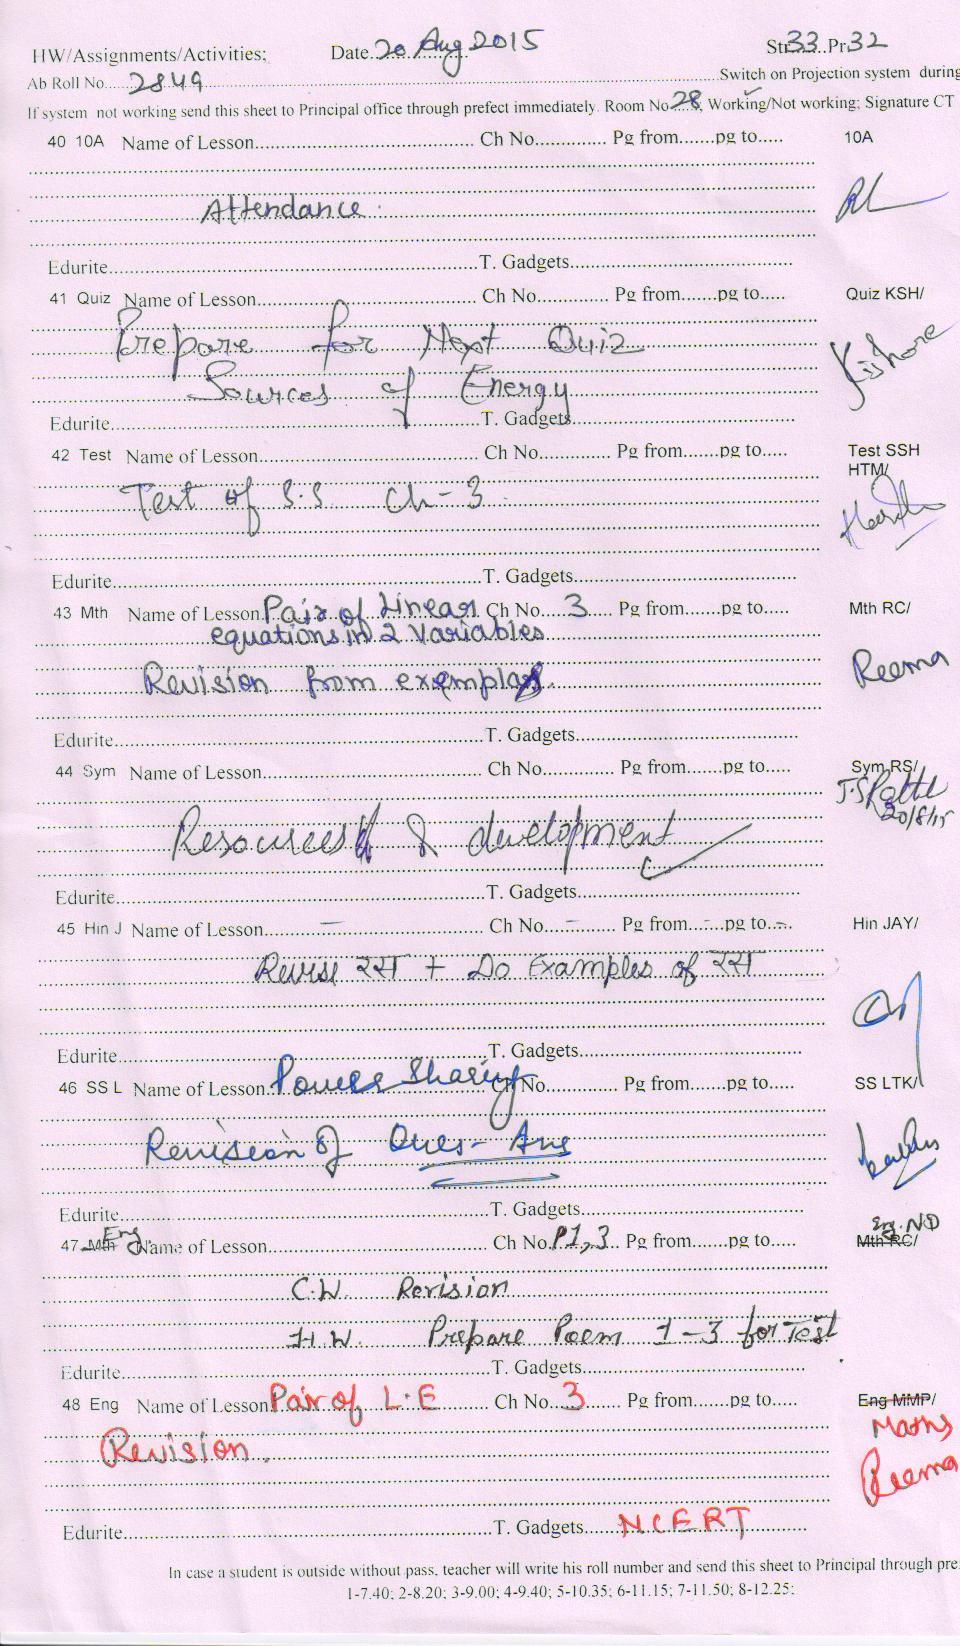 HW/Assignments/Activities; Date..20 Aug 2015 Str33..Pr32
Ab Roll No....2849........Switch on Projection system during
If system not working send this sheet to Principal office through prefect immediately. Room No..28, Working/Not working; Signature CT
40 10A Name of Lesson........ Ch No........ Pg from.......pg to..... 10A
Attendance.
Edurite........T. Gadgets........
41 Quiz Name of Lesson........ Ch No........ Pg from.......pg to..... Quiz KSH/
Prepare for Next Quiz Kishore
Sources of Energy
Edurite........T. Gadgets........
42 Test Name of Lesson........ Ch No........ Pg from.......pg to..... Test SSH
HTM/
Test of S.S. Ch-3.
Edurite........T. Gadgets........
43 Mth Name of Lesson Pair of Linear Ch No...3..... Pg from.......pg to..... Mth RC/
equations in 2 variables
Revision from exemplar. Reema
Edurite........T. Gadgets........
44 Sym Name of Lesson........ Ch No........ Pg from.......pg to..... Sym RS/
20/8/15
Resources & development
Edurite........T. Gadgets........
45 Hin J Name of Lesson.....–..... Ch No...–..... Pg from..–..pg to..–.. Hin JAY/
Revise रस + Do Examples of रस
Edurite........T. Gadgets........
46 SS L Name of Lesson. Power Sharing Ch No........ Pg from.......pg to..... SS LTK/
Revision of Ques-Ans
Edurite........T. Gadgets........
Eng. ND
47 Mth Eng Name of Lesson........ Ch No. P1,3.. Pg from.......pg to..... Mth RC/
C.W. Revision
H.W. Prepare Poem 1-3 for Test
Edurite........T. Gadgets........
48 Eng Name of Lesson Pair of L.E Ch No...3..... Pg from.......pg to..... Eng MMP/
Maths
Revision. Reema
Edurite........T. Gadgets......NCERT........
In case a student is outside without pass, teacher will write his roll number and send this sheet to Principal through pre
1-7.40; 2-8.20; 3-9.00; 4-9.40; 5-10.35; 6-11.15; 7-11.50; 8-12.25;